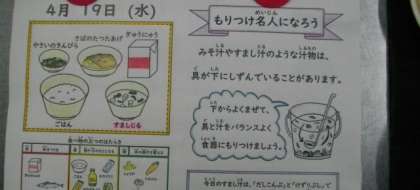 4月19日(水)
やさいのきんぴら
さばのたつたあげ
ぎゅうにゅう
ごはん
すましじる
もりつけ名人になろう
めいじん
みそ汁やすまし汁のような汁物は、
具が下にしずんでいることがあります。
下からよくまぜて、
具と汁をバランスよく
食器にもりつけましょう。
今日のすまし汁は、「だしこんぶ」と「けずりぶし」で